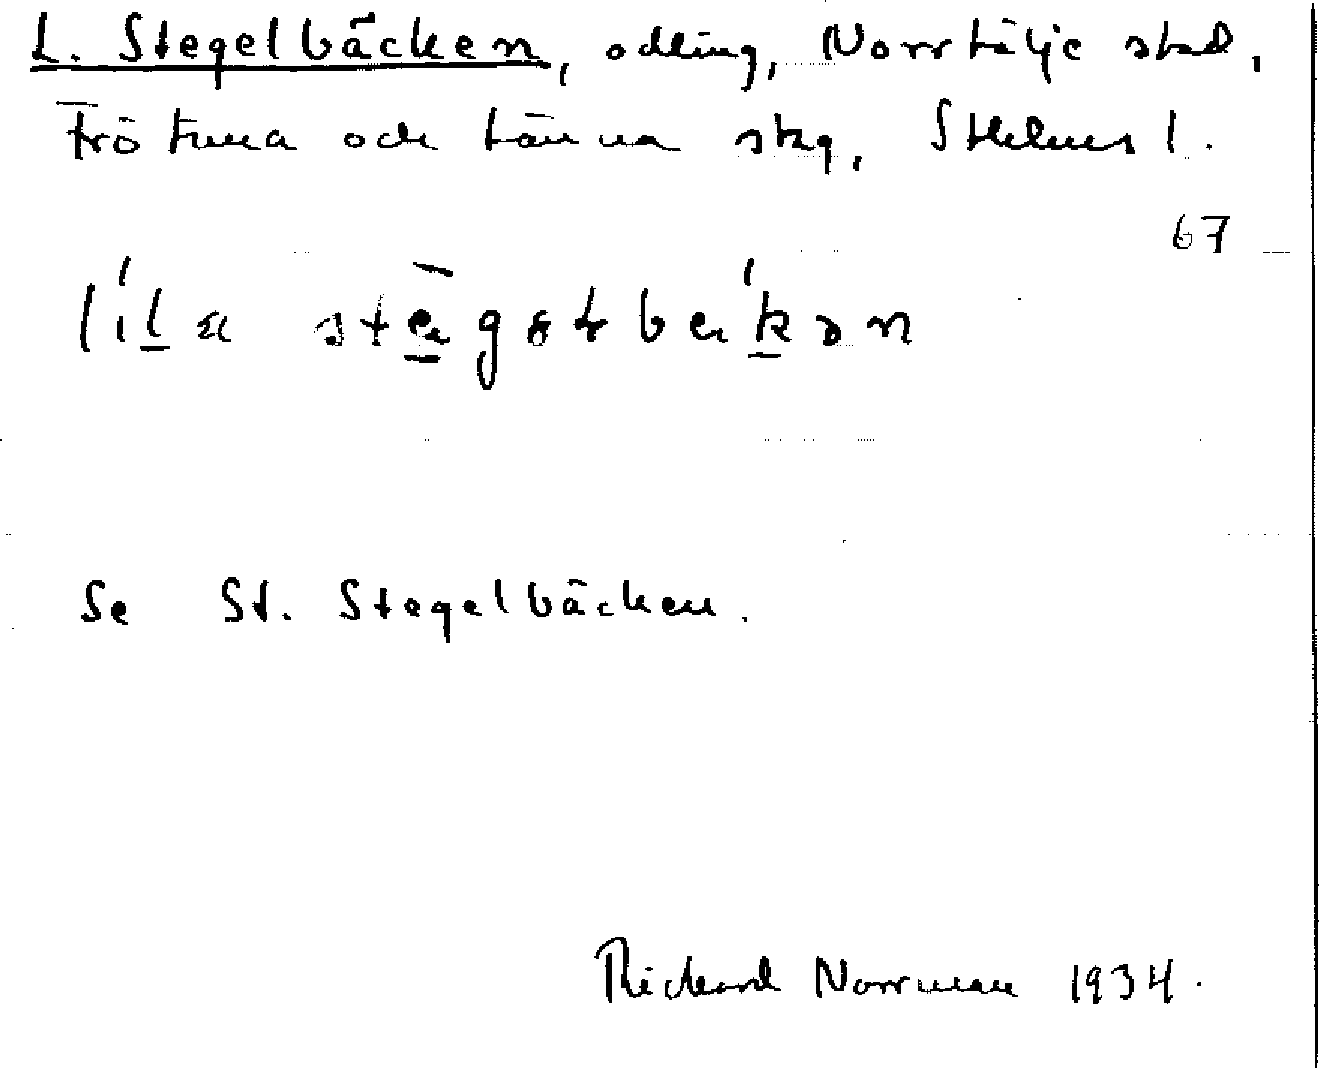 L. Stegelbäcken, odling, Norrtälje stad,
Frötuna och Länna skg, Sthlms l.
67
Se St. Stegelbäcken.
Rickard Norrman 1934.